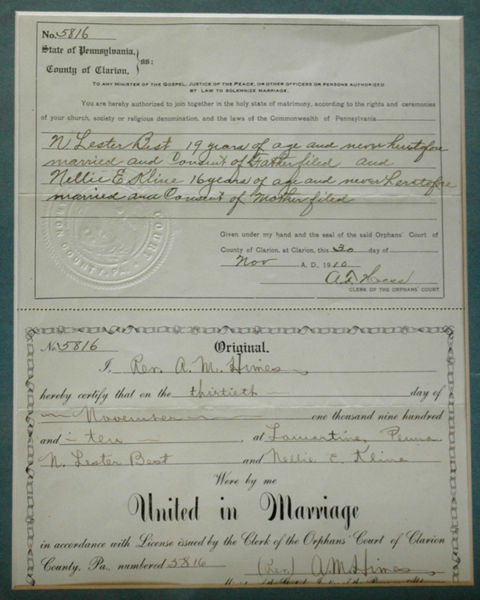 No. 5816
State of Pennsylvania,
County of Clarion.
ss:
TO ANY MINISTER OF THE GOSPEL, JUSTICE OF THE PEACE, OR OTHER OFFICERS OR PERSONS AUTHORIZED
BY LAW TO SOLEMNIZE MARRIAGE.
You are hereby authorized to join together in the holy state of matrimony, according to the rights and ceremonies
of your church, society or religious denomination, and the laws of the Commonwealth of Pennsylvania
N Lester Best 19 years of age and never heretofore
married and Consent of Father filed and
Nellie E. Kline 16 years of age and never heretofore
married and Consent of Mother filed
Given under my hand and the seal of the said Orphans' Court of
County of Clarion, at Clarion, this 30 day of
Nov A. D. 1910
CLERK OF THE ORPHANS' COURT
COURT
CLARION COUNTY, PA.
No. 5816 Original.
I, Rev. A. M. Himes
hereby certify that on the thirtieth day of
November one thousand nine hundred
and ten, at Lamartine, Penna
N. Lester Best and Nellie E. Kline
Were by me
United in Marriage
in accordance with License issued by the Clerk of the Orphans' Court of Clarion
County, Pa., numbered 5816 (Rev) A. M. Himes